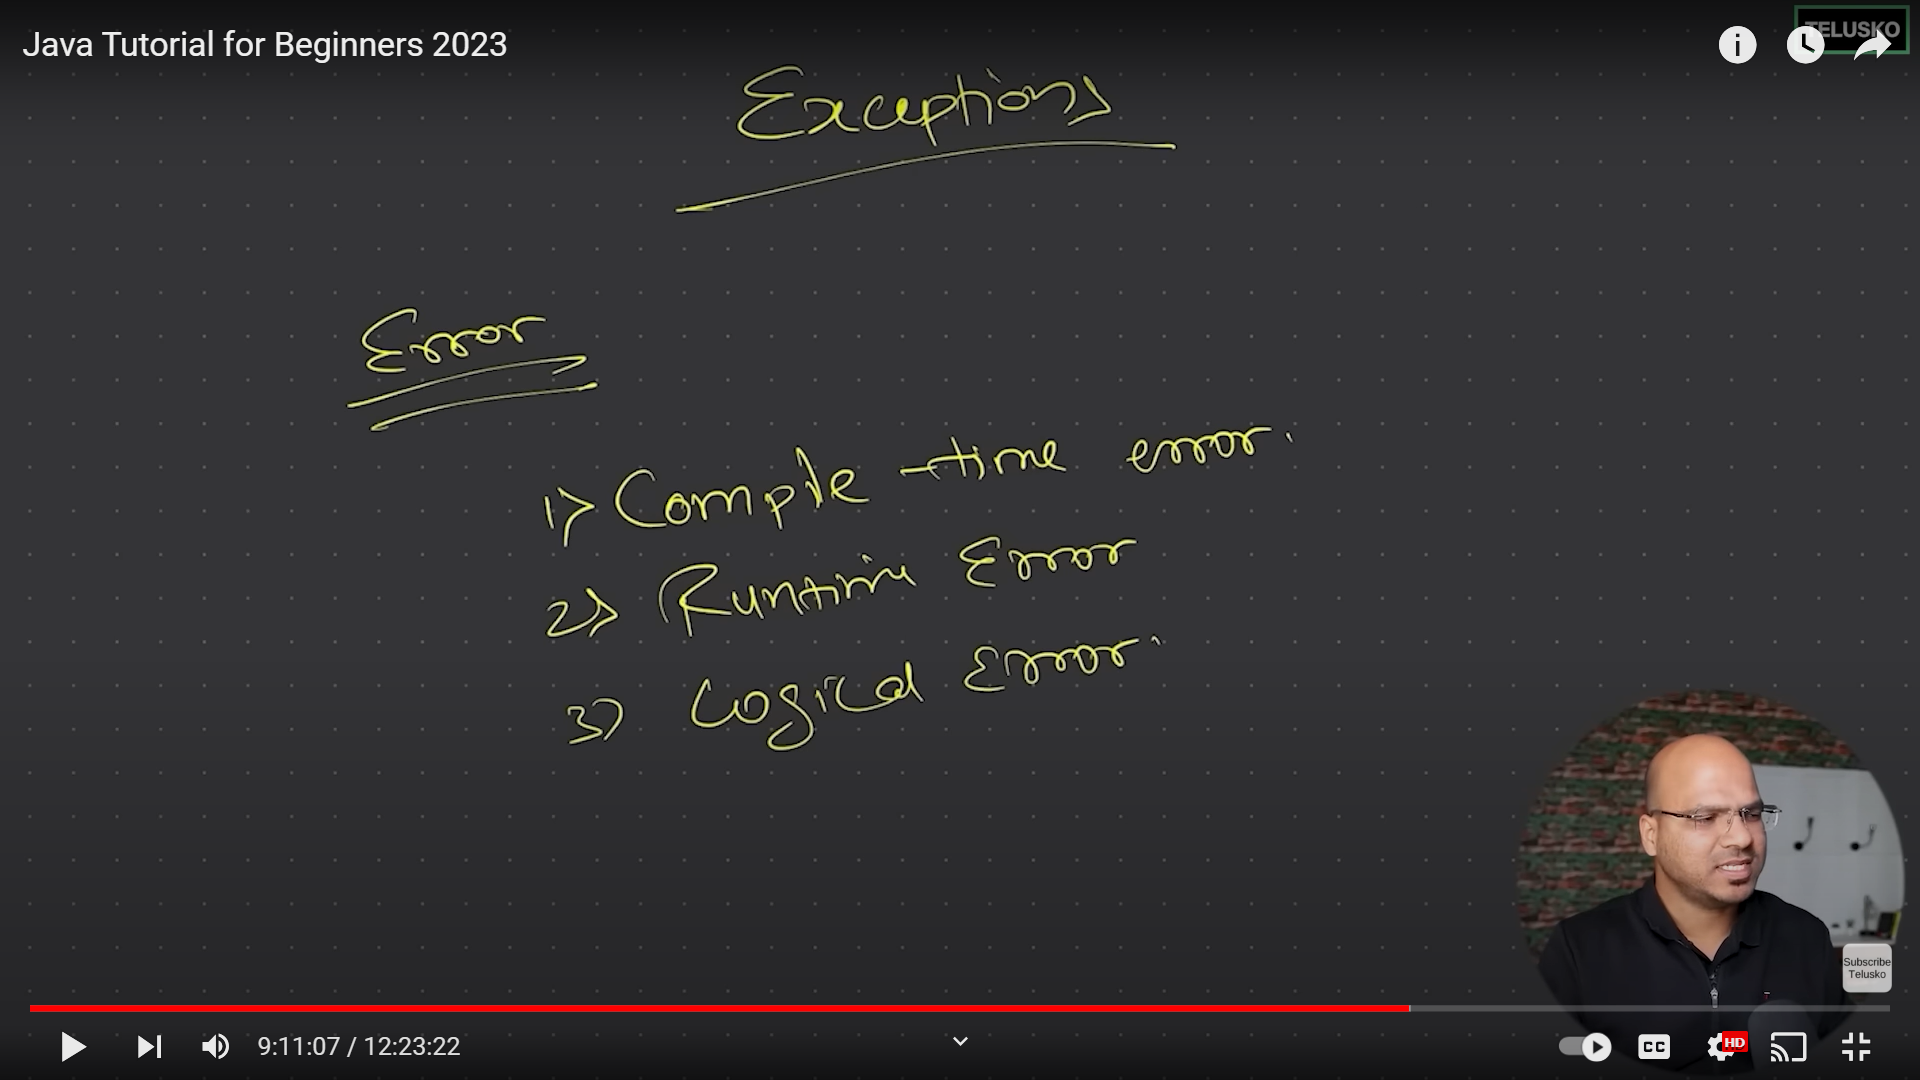 Java Tutorial for Beginners 2023
TELUSKO
Exceptions
Error
1) Compile-time error.
2) Runtime Error
3) Logical Error.
Subscribe
Telusko
9:11:07 / 12:23:22
CC
HD